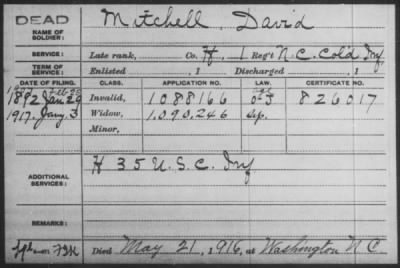 DEAD
NAME OF SOLDIER: Mitchell, David
SERVICE: Late rank, Co. H, 1 Reg't N.C. Cold Inf
TERM OF SERVICE: Enlisted , 1 Discharged , 1
DATE OF FILING. CLASS. APPLICATION NO. LAW. CERTIFICATE NO.
1892 Jan 29 Invalid, 1088166 826017
1917. Jany. 3 Widow, 1,090,246 Ap.
Minor,
ADDITIONAL SERVICES: H 35 U.S.C. Inf
REMARKS:
Died May 21, 1916, at Washington N C